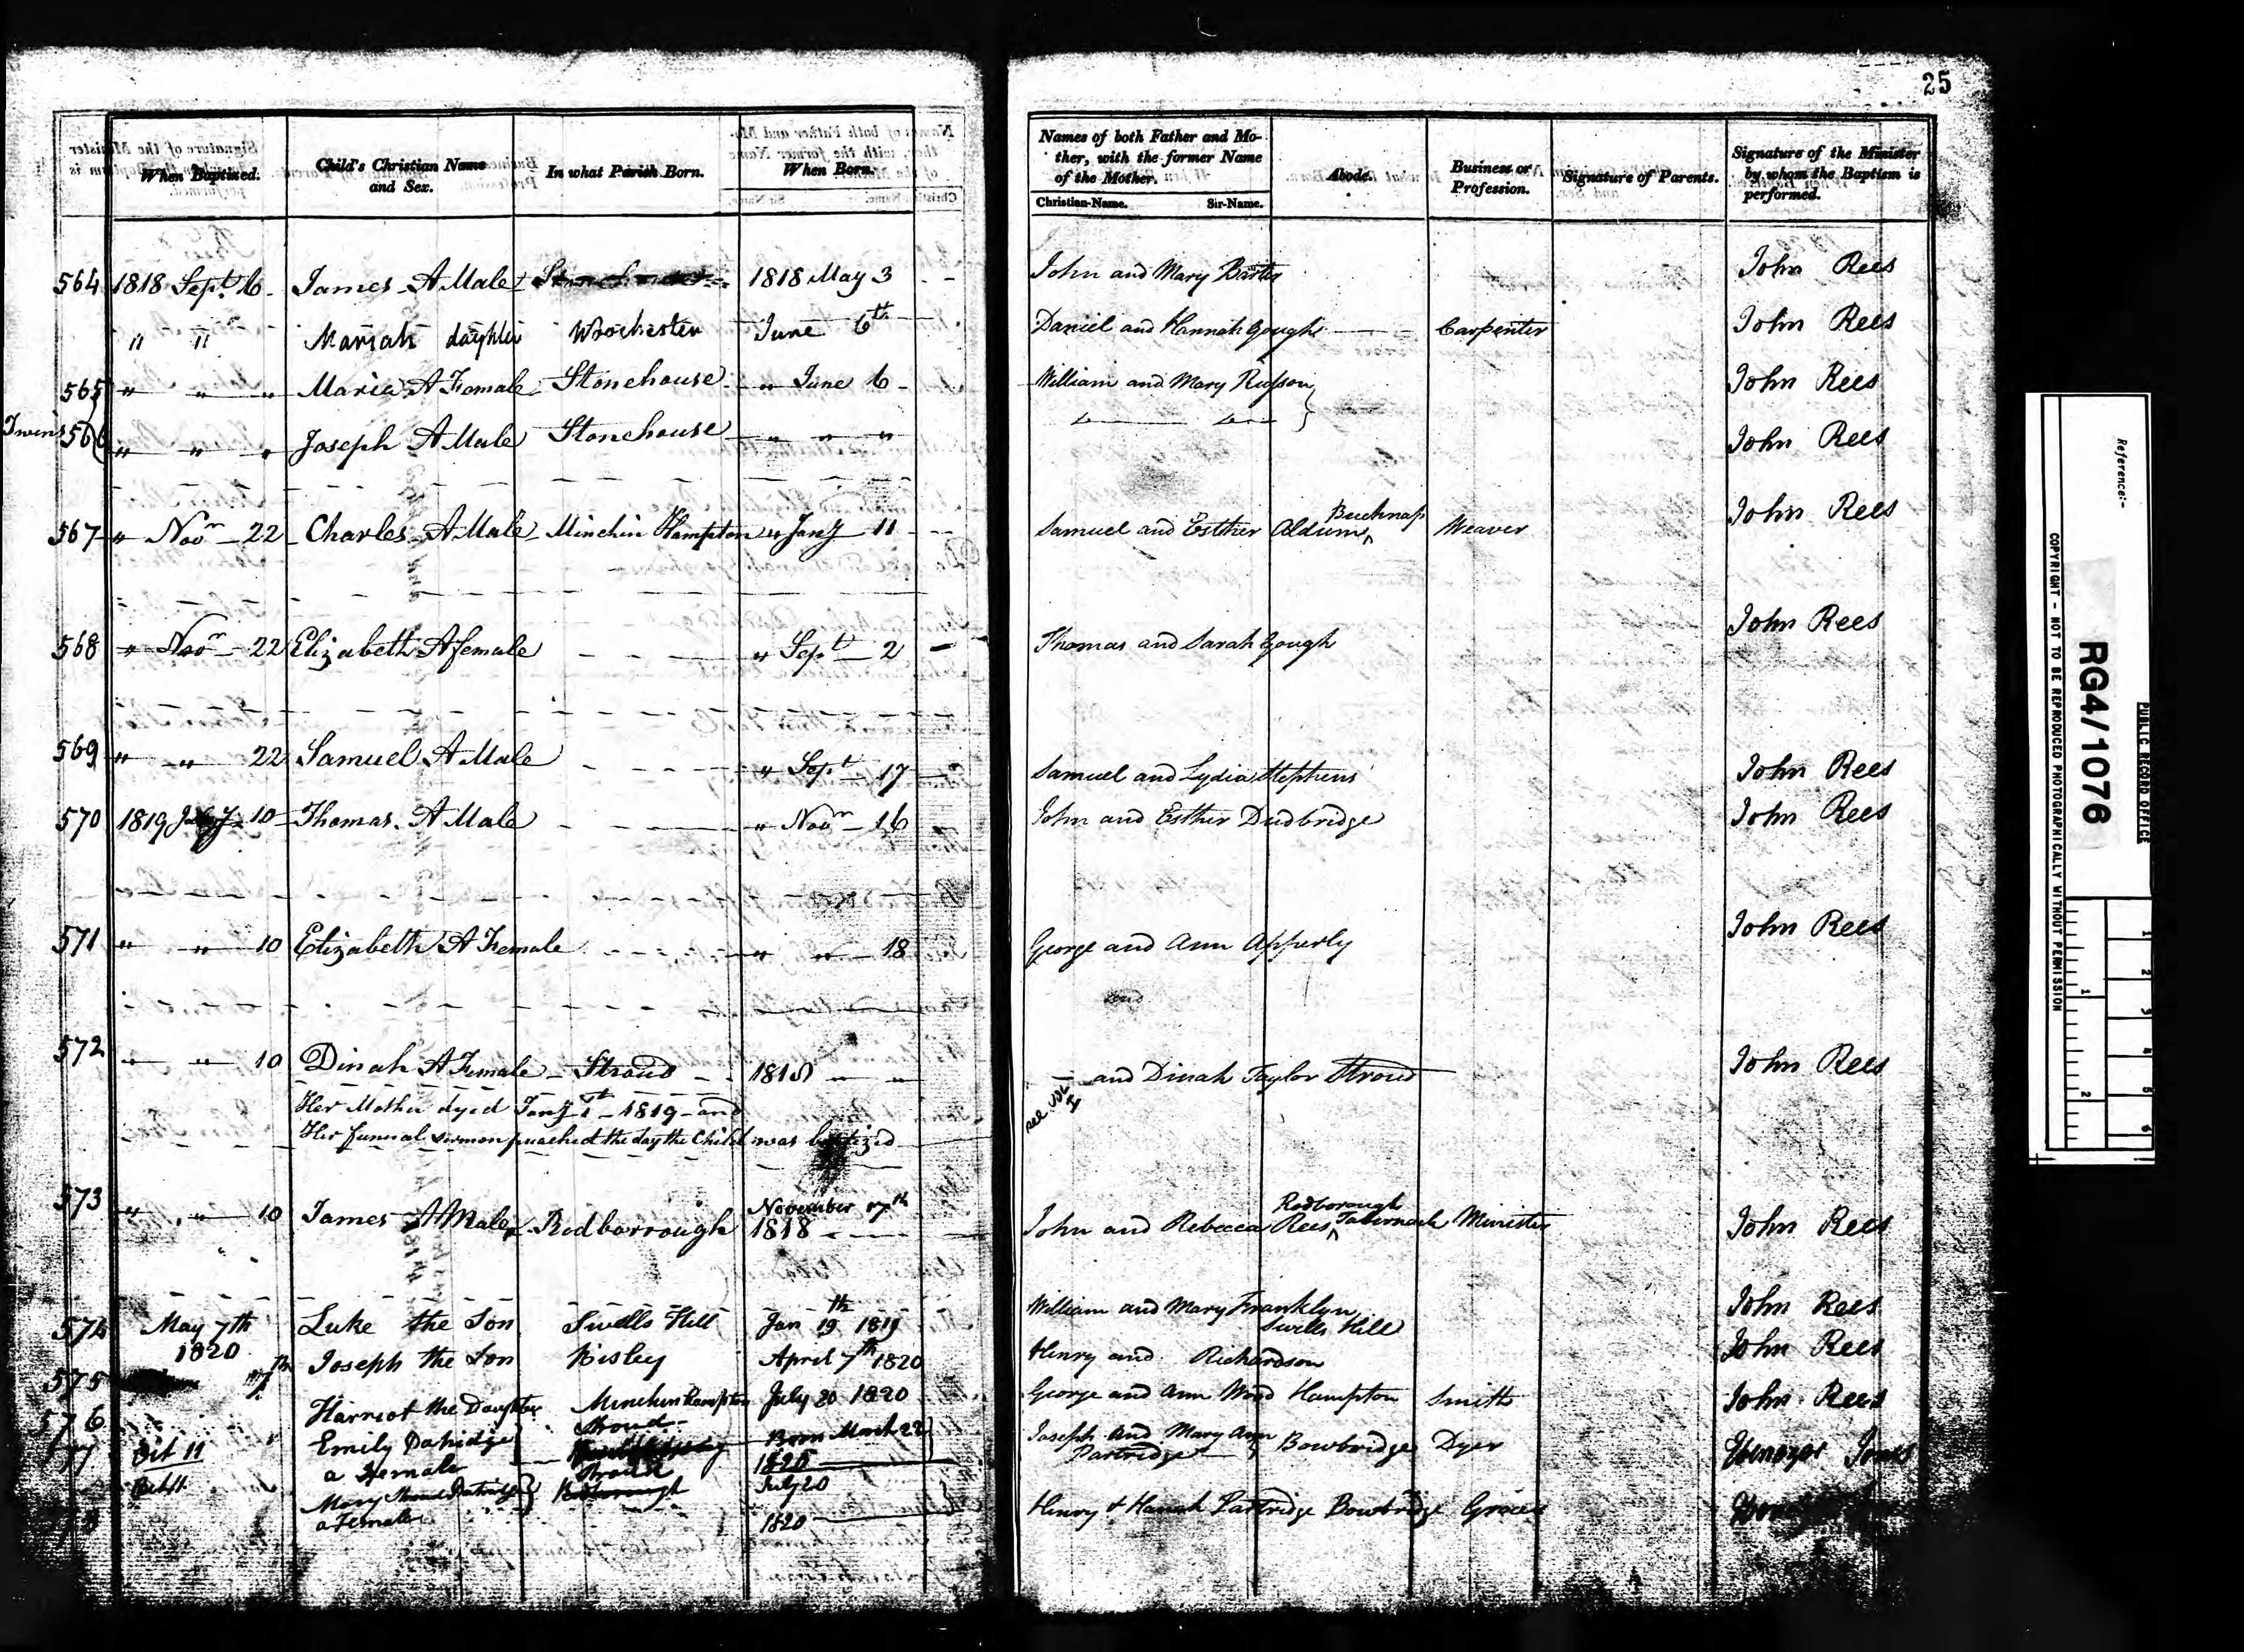 25
When Baptized.
Child's Christian Name and Sex.
In what Parish Born.
When Born.
Names of both Father and Mo-
ther, with the former Name
of the Mother.
Christian-Name. Sir-Name.
Abode.
Business or Profession.
Signature of Parents.
Signature of the Minister
by whom the Baptism is
performed.
564 1818 Sept. 6 James A Male 1818 May 3 John and Mary John Rees
" " Mariah daughter June 6th Daniel and Hannah Gough Carpenter John Rees
565 " " " Maria A Female Stonehouse " June 6 William and Mary John Rees
Twins 566 " " " Joseph A Male Stonehouse " " " John Rees
567 " Novr 22 Charles A Male Minchin Hampton " Jany 11 Samuel and Esther Aldum Weaver John Rees
568 " Novr 22 Elizabeth A female " Sept 2 Thomas and Sarah Gough John Rees
569 " " 22 Samuel A Male " Sept 17 Samuel and Lydia Stephens John Rees
570 1819 10 Thomas A Male " Novr 16 John and Esther Dudbridge John Rees
571 " " 10 Elizabeth A Female " " 18 George and Ann Apperly John Rees
572 " " 10 Dinah A Female Stroud 1818 " " and Dinah Taylor Stroud John Rees
Her Mother dyed Jany 1st 1819 and
Her funeral sermon preached the day the Child was baptized
see vol
573 " " 10 James A Male Rodborrough November 17th 1818 John and Rebecca Rees Rodborough Tabernacle Minister John Rees
574 May 7th 1820 Luke the Son Swells Hill Jan 19th 1819 William and Mary Franklyn Swells Hill John Rees
575 7th Joseph the Son Bisley April 7th 1820 Henry and Richardson John Rees
576 Harriot the Daughter Minchinhampton July 20 1820 George and Ann Wood Hampton Smith John Rees
577 Oct 11 Emily a Female Stroud Born March 22 1820 Joseph and Mary Ann Partridge Bowbridge Dyer Ebenezer Jones
Oct 11 Mary a Female Stroud July 20 1820 Henry & Hanah Partridge Bowbridge Grocer
Reference:-
PUBLIC RECORD OFFICE
RG4/1076
COPYRIGHT - NOT TO BE REPRODUCED PHOTOGRAPHICALLY WITHOUT PERMISSION